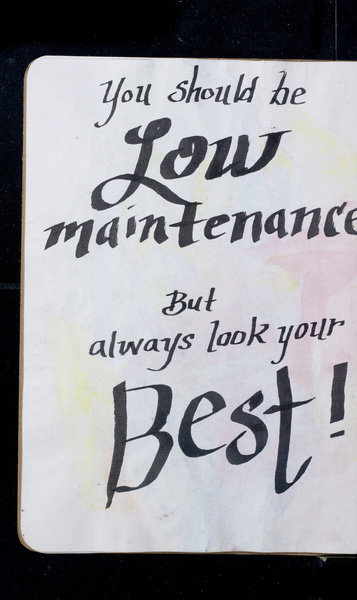 You should be
Low
maintenance
But
always look your
Best!